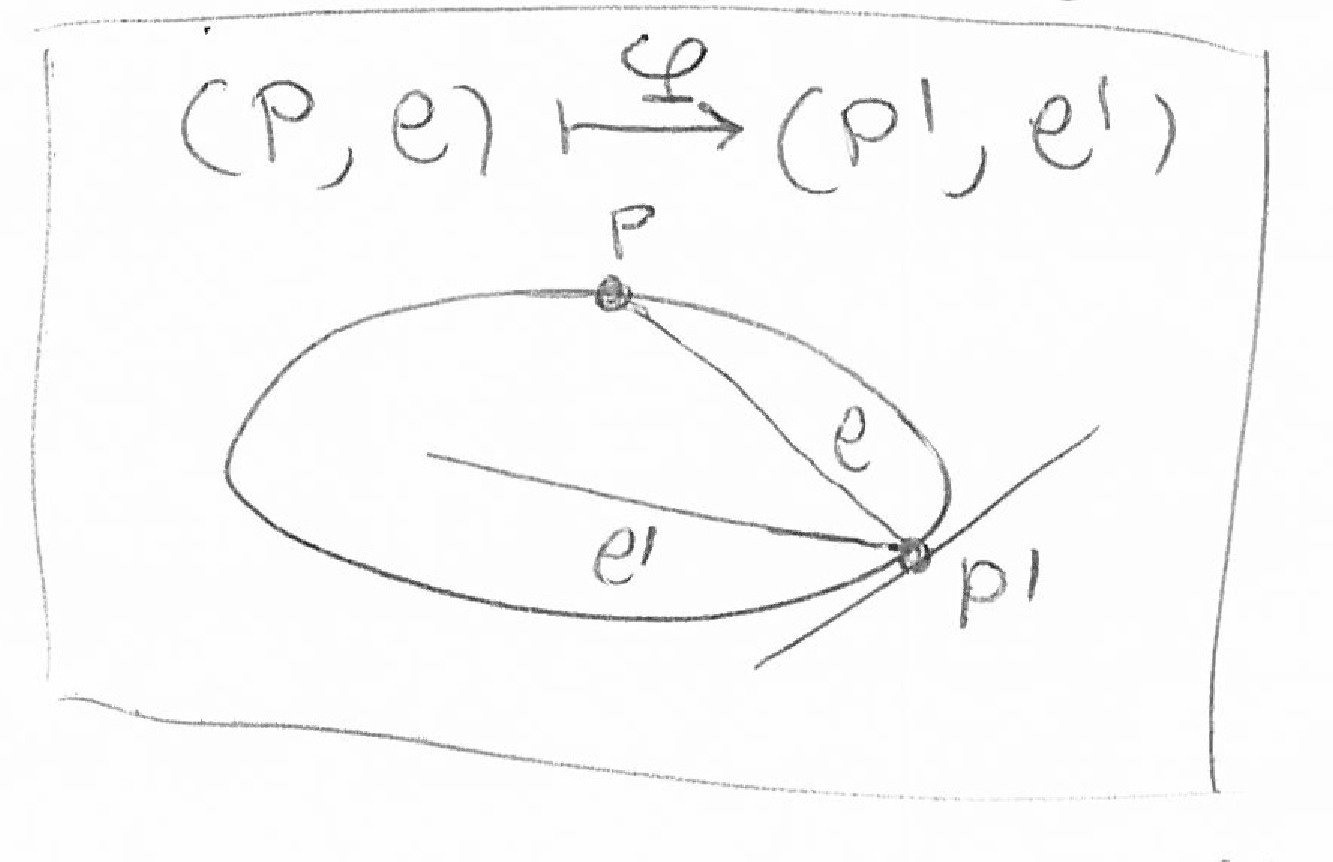 φ
(P, e) ↦ (P', e')
P
e
e'
P'